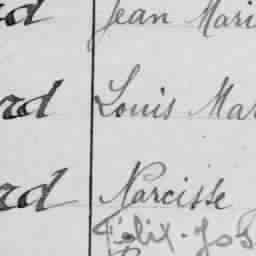 rd Jean Mari
rd Louis Mar
rd Narcisse
Félix-Jos